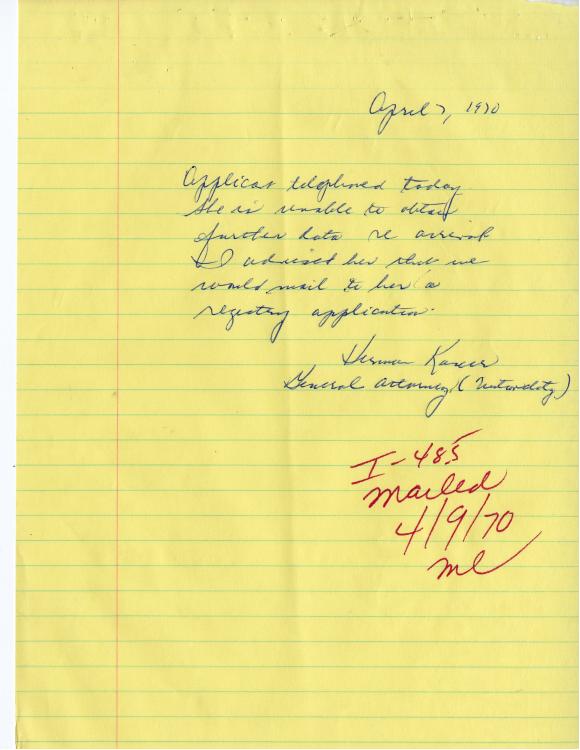 April 7, 1970
Applicant telephoned today
She is unable to obtain
further data re arrival
I advised her that we
would mail to her a
registry application.
Herman
General Attorney (Nationality)
I-485
Mailed
4/9/70
ml